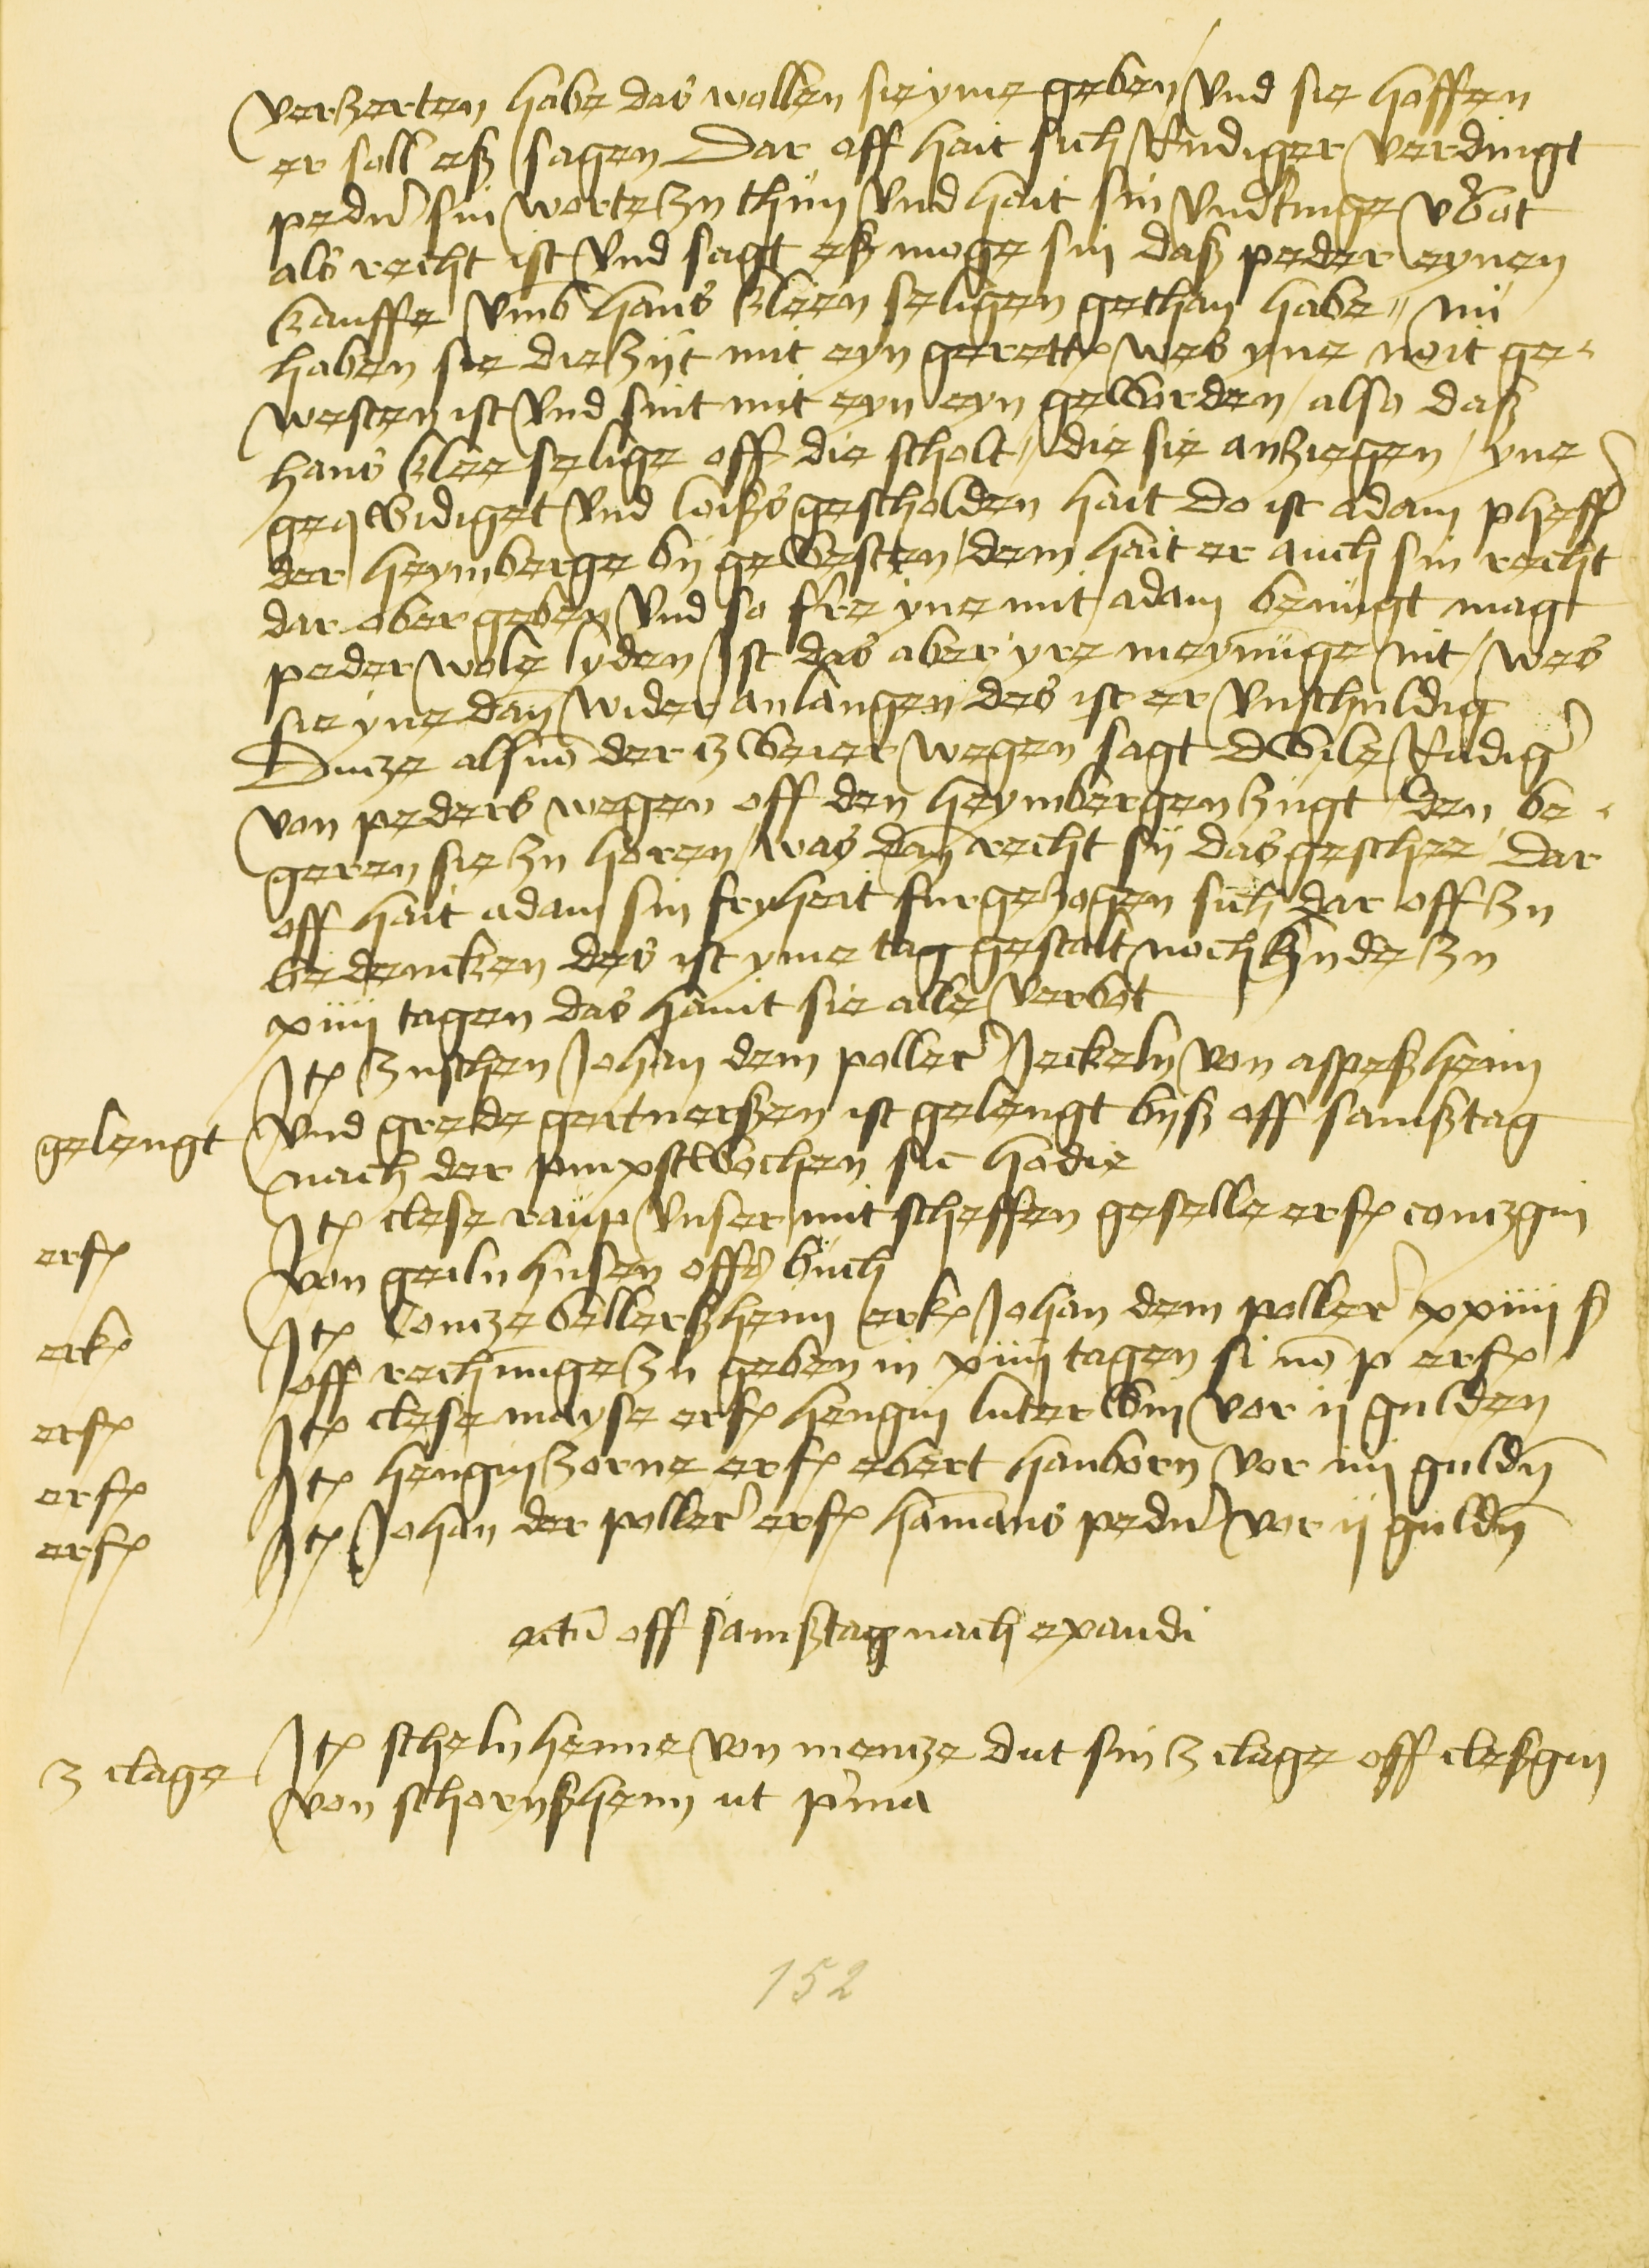 verzerten habe das wollen sie yme geben und sie hoffen
er soll eß sagen Dar off hait sich Rudiger verdingt
peder sin worte zu thun und hait sin underdinge verbot
als recht ist und sagt eß moge sin daß peder eynen
kauffe umb hans kleen seligen gethan habe nu
haben sie die zijt mit eyn gerett wes yne noit ge
westen ist und sint mit eyn eyn geworden also daß
hans klee selige off die scholt die sie anziegen yne
geqwidiget und loißs gescholden hait Do ist adam pheff
der heymberge by gewesten dem hait er auch sin recht
dar ober geben und so fre yne mit adam benugt magt
peder wole lyden Ist das aber yre meynunge nit wes
sie yne dan wider anlangen des ist er unschuldig
Dincze als der zweier wegen sagt Dwile Rudiger
von peders wegen off den heymbergen zugt den be
geren sie zu horen was dan recht sij das geschee Dar
off hait adam sin fryheit furgezogen sich dar off zu
bedencken des ist yme tag gestalt noch hude zu
xiiii tagen das hant sie alle verbot
Item zuschen Johan dem poller Jeckeln von aspeßheim
gelengt und grede gertnerßen ist gelengt byß off samßtag
nach der pinxstwochen sic hodie
erf Item clese raup unser mit scheffen geselle erf contzgin
von geilnhusen offs buch
erk Item Contze bellerßheim erk Johan dem poller xxiiii ß
off rechnunge zu geben in xiiii tagen si no p erf
erf Item clese mayse erf hengin luterwin vor ij gulden
erf Item hengin zorne erf ebert hanborn vor iiij guldn
erf Item Johan der poller erf hamans peder vor ij guldn
actum off samßtag nach exaudi
3 clage Item scheln henne von mencze dut sin 3 clage off cleßgin
von schornßheim ut prima
152